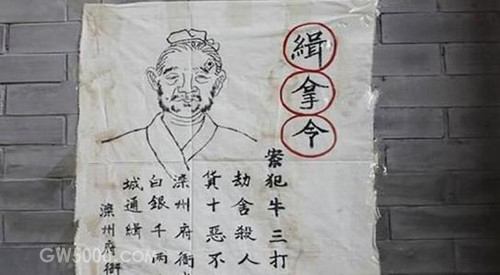 緝拿令
案犯牛三打
劫舍殺人
貨十惡不
滦州府衙
白銀千兩
城通緝
滦州府衙
GW5000.com